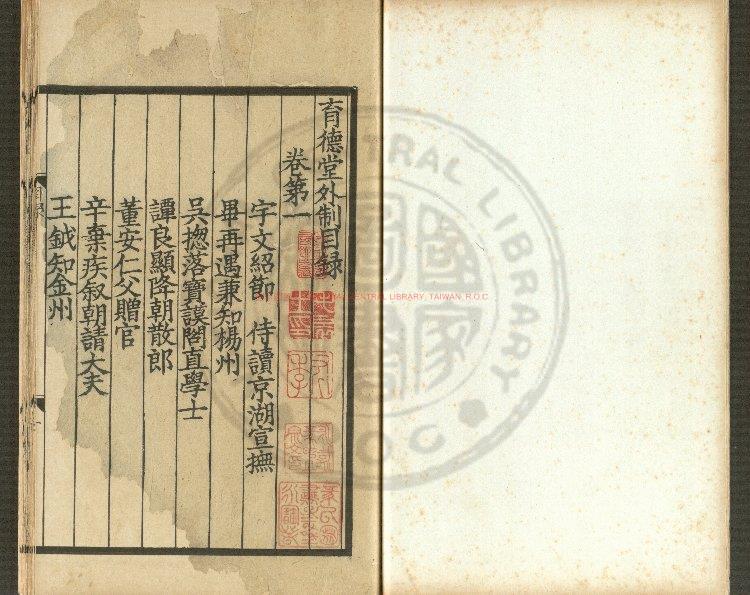 育德堂外制目録
卷第一
宇文紹節 侍讀京湖宣撫
畢再遇兼知楊州
吳揔落寶謨閣直學士
譚良顯降朝散郎
董安仁父贈官
辛棄疾叙朝請大夫
王鉞知金州
CENTRAL LIBRARY, TAIWAN, R.O.C
CENTRAL LIBRARY
國家圖書館